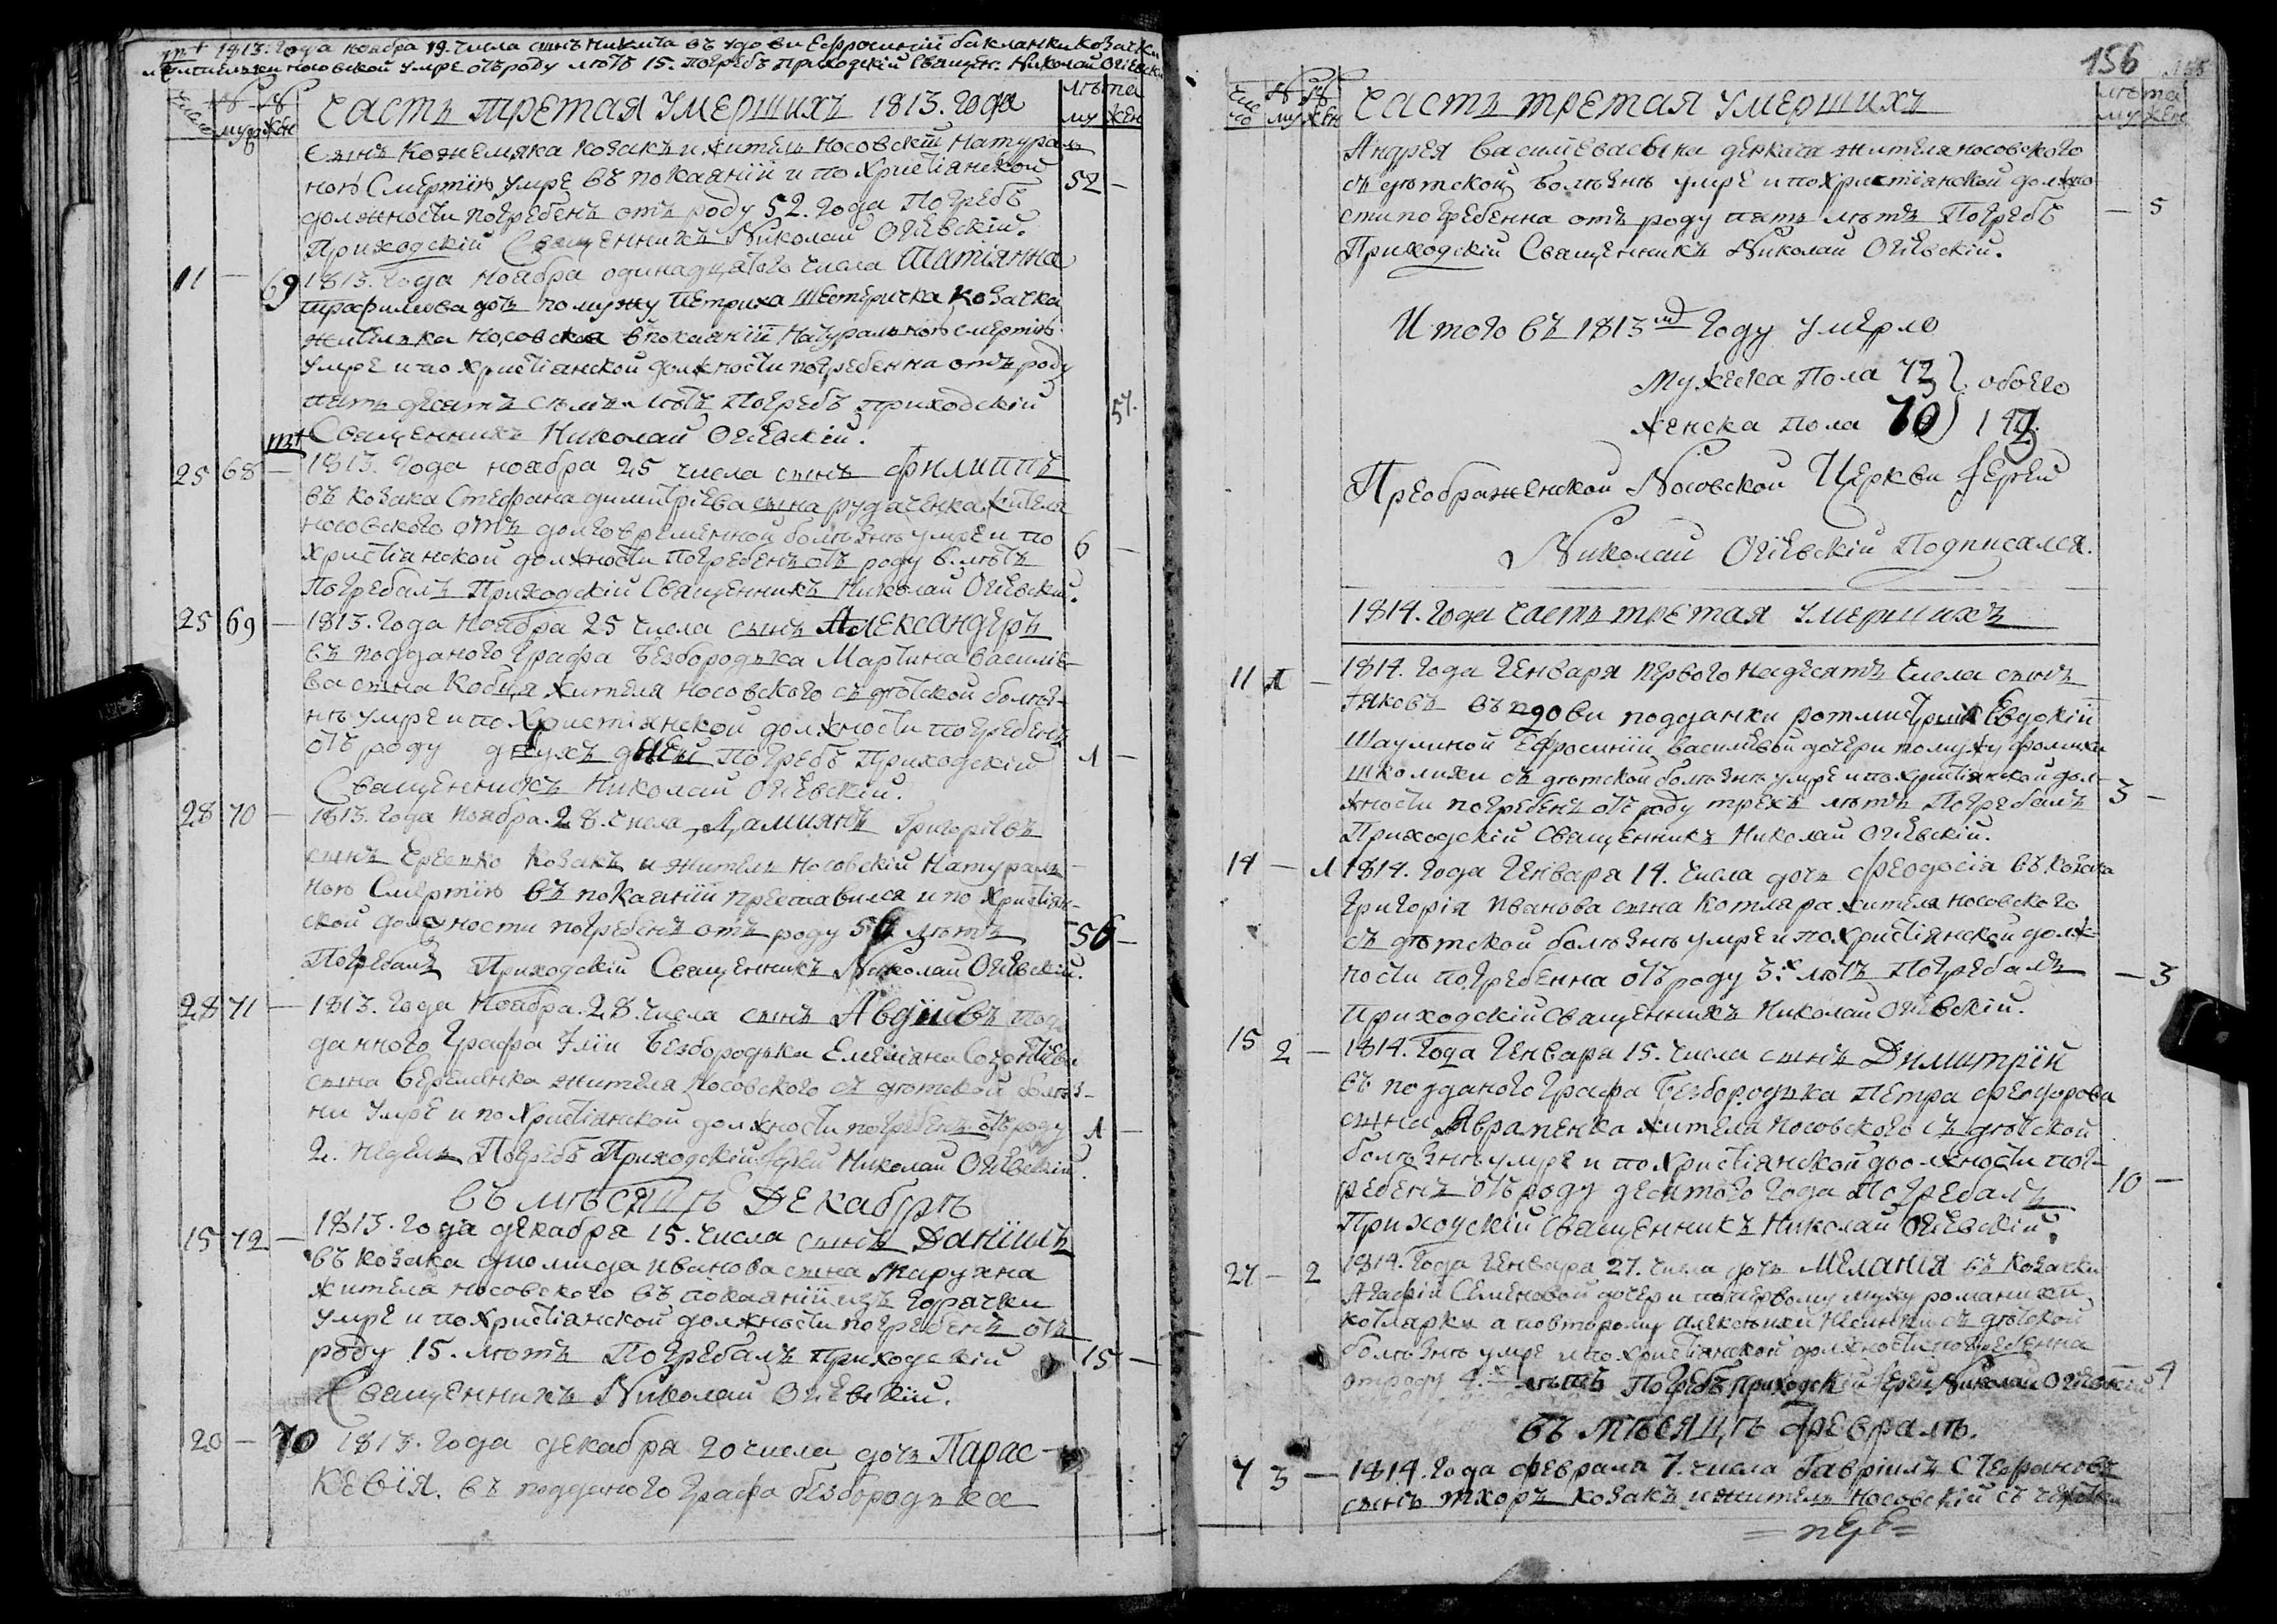 1813. Года ноабра 19. числа сынъ Никита въ удови Ефросиніи бакланки козачки
носовской умре отъ роду летъ 15. погребъ приходскій Священ. Николай Огіевскій
Число № № Часть третая умершихъ 1813. года лета
муж жен му жен
сынъ Кожемяка козакъ и житель Носовскій Натураль
ною Смертію умре въ покаяніи и по Христіянской 52 —
должности погребенъ отъ роду 52. года Погребъ
Приходскій Священникъ Николай Огіевскій.
11 — 69 1813. Года ноабра одинадцатого числа Татіянна
трофимова дочь по мужу Петриха Шестеричка козачка
жителка носовская в покаяніи Натуральною смертію
умре и по Христіянской должности погребенна отъ роду
пять десятъ семъ летъ Погребъ приходскій 57.
Священникъ Николай Огіевскій.
25 68 — 1813. Года ноабра 25 числа сынъ Филиппъ
въ козака Стефана димитріева сына рудаченка жителя
носовского отъ долговременной болезнѣ умре и по
христіянской должности погребенъ отъ роду 6. летъ 6 —
Погребалъ Приходскій Священникъ Николай Огіевскій.
25 69 — 1813. Года Ноабра 25 числа сынъ Александеръ
въ подданого Графа Безбородька Мартина василіе
ва сына Кобця жителя носовского съ детской болез-
нѣ умре и по Христіянской должности погребенъ
отъ роду двухъ дней погребъ Приходскій 1 —
Священникъ Николай Огіевскій.
28 70 — 1813. Года Ноабра. 28. числа Даміянъ Григоріевъ
сынъ козакъ и житель Носовскій Натураль
ною Смертію въ покаяніи преставился и по Христіян-
ской должности погребенъ отъ роду 56 летъ 56 —
Погребалъ Приходскій Священникъ Николай Огіевскій.
28 71 — 1813. Года Ноабра. 28. числа сынъ Авдіивъ под
данного Графа Иліи Безбородька Емеліяна Созонтіева
сына Веремѣнка жителя Носовского съ детской болез-
ни умре и по Христіянской должности погребенъ отъ роду 1 —
2. недель Погребъ Приходскій Іерей Николай Огіевскій.
въ месяцѣ Декабрѣ
15 72 — 1813. года декабря 15. числа сынъ Даніилъ
въ козака диомида иванова сына Марухна
жителя носовского въ покаяніи изъ горачки
умре и по Христіянской должности погребенъ отъ
роду 15. летъ Погребалъ приходскій 15 —
Священникъ Николай Огіевскій.
20 — 70 1813. года декабря 20 числа дочь Парас-
кевія. въ подданого Графа безбородька
156
Число № № Часть третая умершихъ лета
му жен му жен
Андрея василіева сына деркача жителя носовского
съ детской болезнѣ умре и по Христіянской должно
сти погребенна отъ роду пять летъ Погребъ — 5
Приходскій Священникъ Николай Огіевскій.
Итого въ 1813мъ Году умерло
Мужеска пола 72 обоего
женска пола 70 142
Преображенской Носовской Церкви Іерей
Николай Огіевскій Подписался.
1814. Года часть третая умершихъ
11 1 — 1814. Года Генваря первого надесять числа сынъ
Іаковъ въ удови подданки ротмистрши Евдокіи
Шаулиной Ефросиніи василіевой дочери по мужу фомихи
школихи съ детской болезнѣ умре и по христіянской дол-
жности погребенъ отъ роду трехъ летъ Погребалъ 3 —
Приходскій Священникъ Николай Огіевскій.
14 — 1 1814. Года Генваря 14. числа дочь Феодосія въ козака
Григорія Иванова сына Котляра жителя носовского
съ детской болезнѣ умре и по Христіянской долж
ности погребенна отъ роду 3.х летъ Погребалъ — 3
приходскій священникъ Николай Огіевскій.
15 2 — 1814. Года Генваря 15. числа сынъ Димитрій
въ подданого графа Безбородька Петра Феодорова
сына Авраменка жителя носовского съ детской
болезнѣ умре и по Христіянской должности пог-
ребенъ отъ роду десятого года Погребалъ 10 —
Приходскій священникъ Николай Огіевскій.
27 — 2 1814. Года Генваря 27. числа дочь Меланія въ козачки
Агафіи Семеновой дочери по первому мужу романихи
котларки а по второму съ детской
болезнѣ умре и по христіянской должности погребенна
от роду 4.х летъ Погребъ приходскій Іерей Николай Огіевскій 4
въ месяцѣ Февралѣ.
7 3 — 1814. года февраля 7. числа Гавріилъ Стефановъ
сынъ тхоръ козакъ и житель носовскій съ